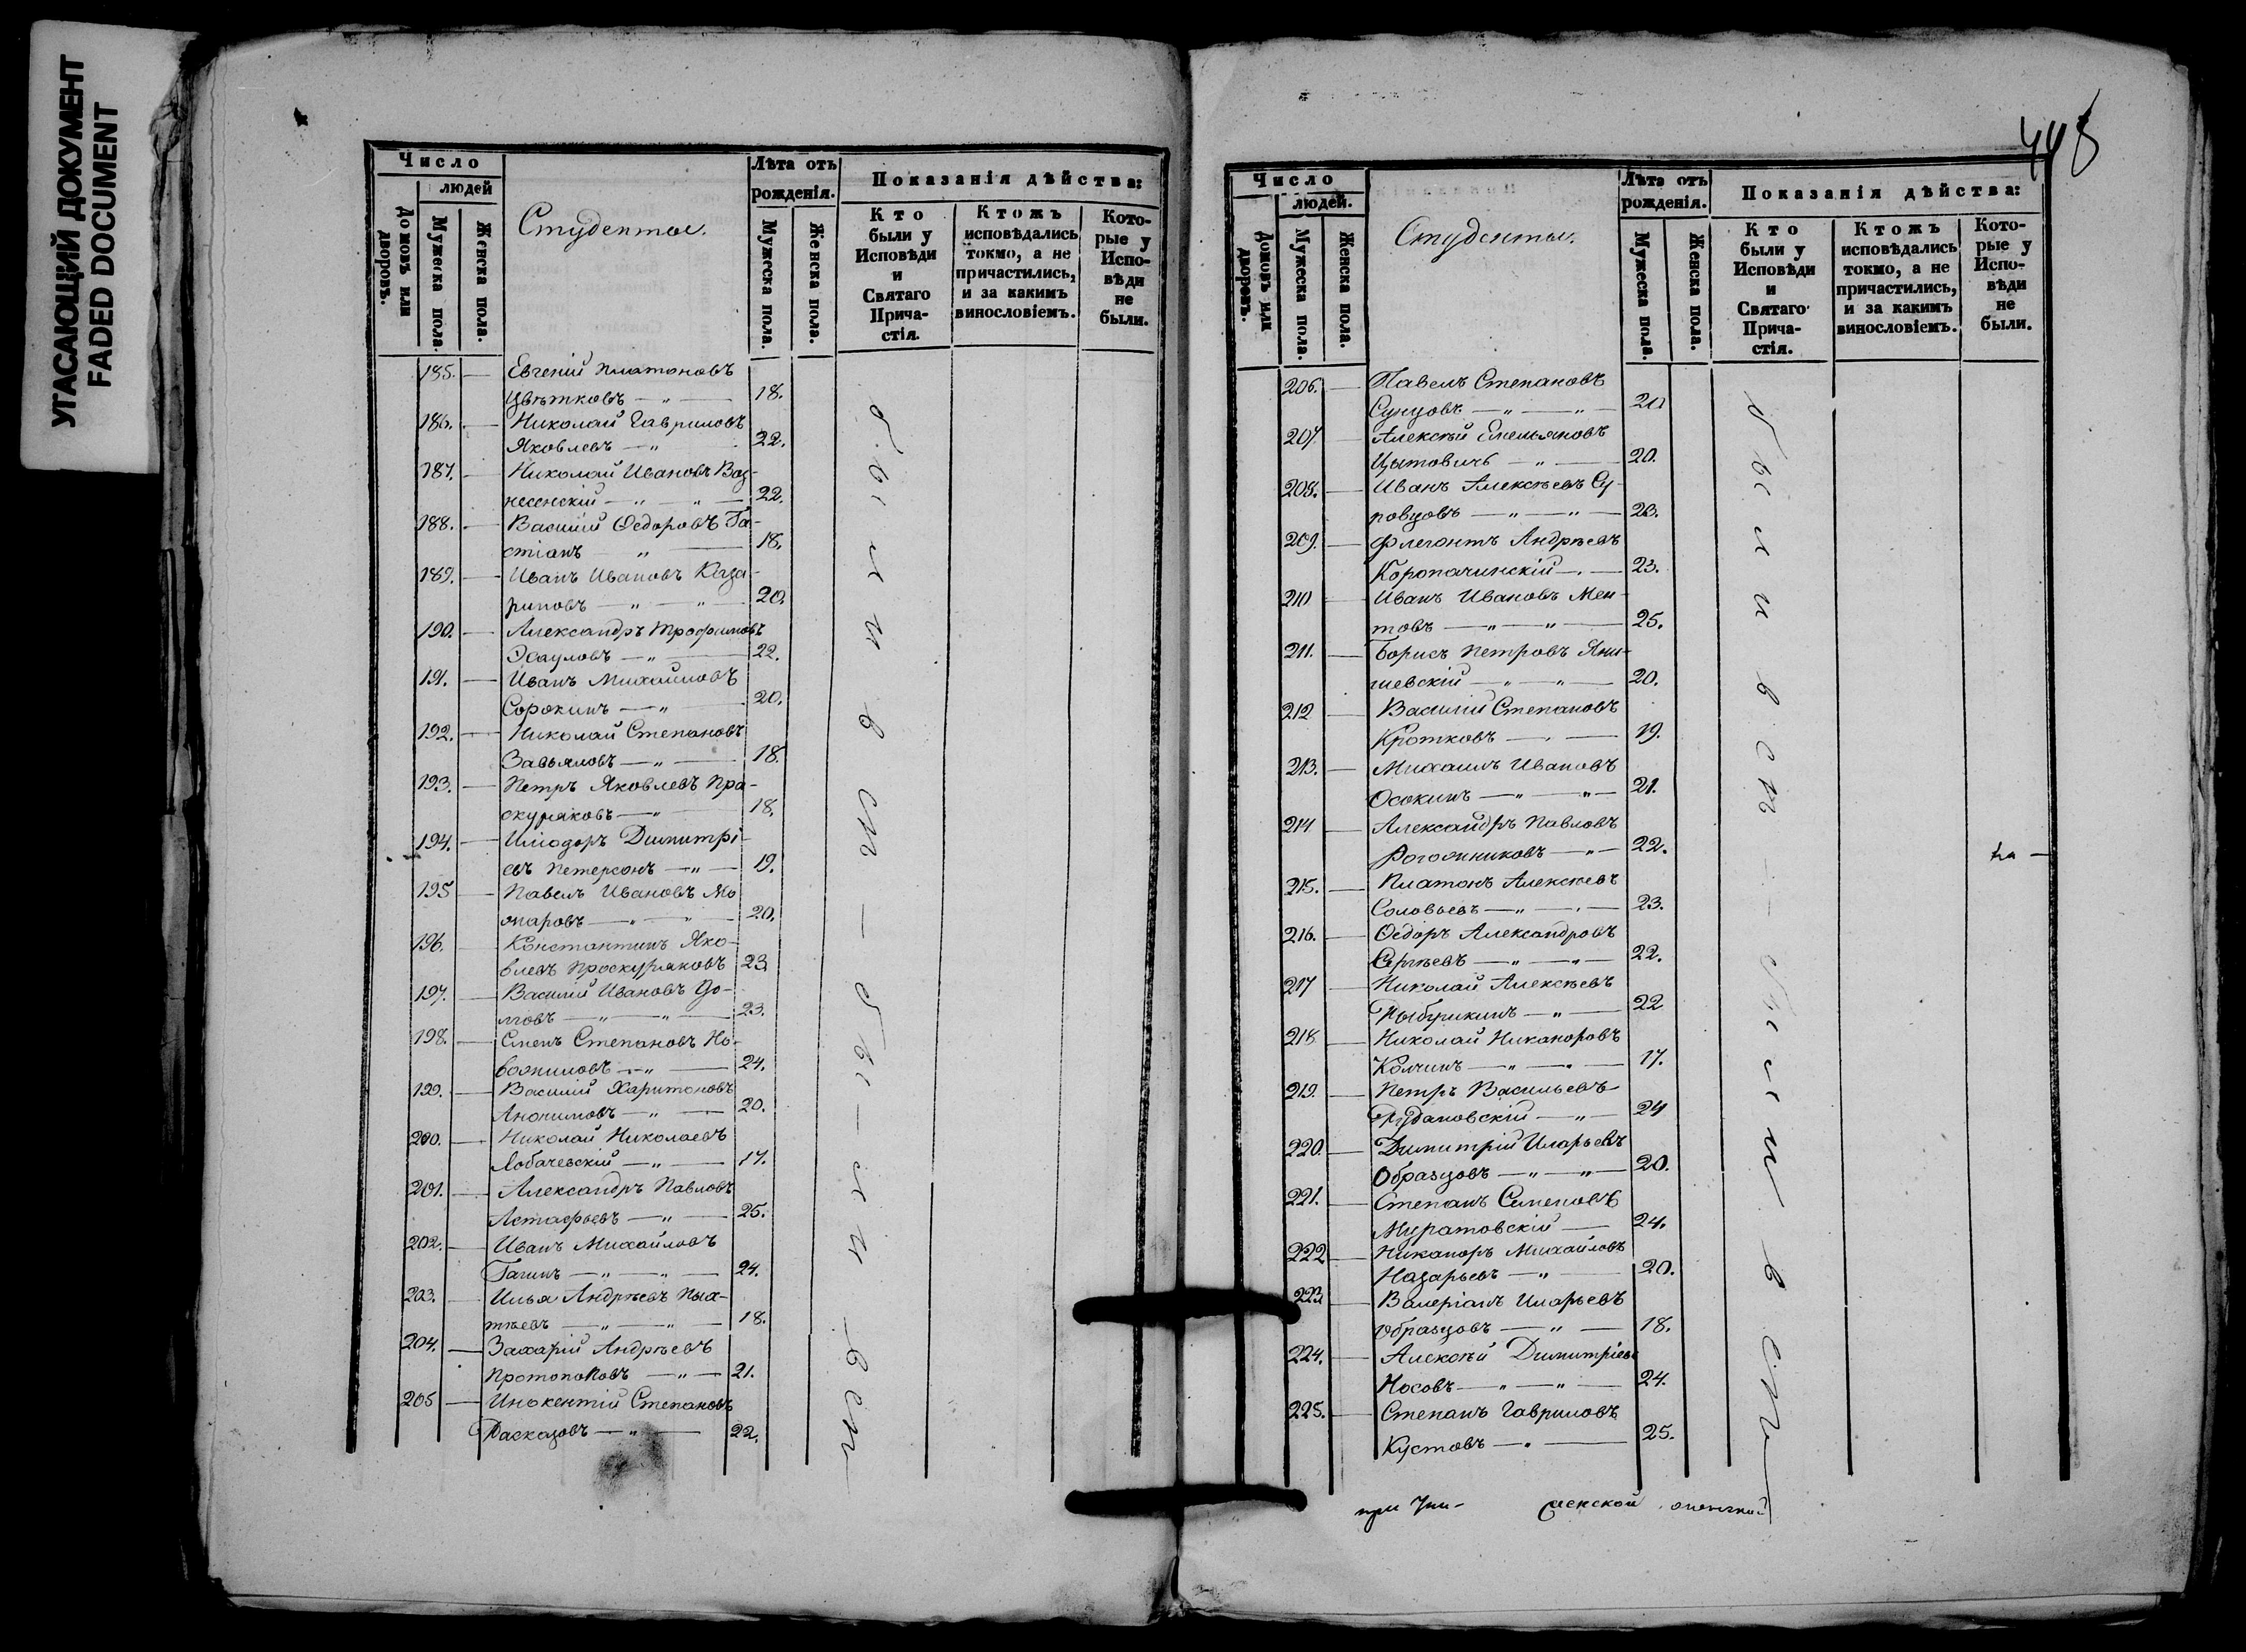 УГАСАЮЩИЙ ДОКУМЕНТ
FADED DOCUMENT
Число
людей
Домовъ или дворовъ.
Мужеска пола.
Женска пола.
Студенты.
Лѣта отъ рожденія.
Мужеска пола.
Женска пола.
Показанія дѣйства:
Кто были у Исповѣди и Святаго Прича-стія.
Ктожъ исповѣдались токмо, а не причастились, и за какимъ винословіемъ.
Кото-рые у Испо-вѣди не были.
185. — Евгений Платоновъ
Цвѣтковъ — „ — 18.
186. — Николай Гавриловъ
Яковлевъ — „ 22.
187. — Николай Ивановъ Воз-
несенскій — „ — „ — 22.
188. — Василій Ѳедоровъ Га-
стіанъ — „ — 18.
189. — Иванъ Ивановъ Каза-
риновъ — „ — „ — 20.
190. — Александръ Трофимовъ
Эсауловъ — „ — 22.
191. — Иванъ Михайловъ
Сорокинъ — „ 20.
192. — Николай Степановъ
Завьяловъ — „ — 18.
193. — Петръ Яковлевъ Про-
скуряковъ — „ 18.
194. — Иліодоръ Димитрі-
евъ Петерсонъ — „ — 19.
195 — Павелъ Ивановъ Мо
жаровъ — „ — „ — 20.
196. — Константинъ Яко-
влевъ Проскуряковъ 23
197. — Василій Ивановъ До-
лговъ — „ — „ — 23.
198. — Семенъ Степановъ Но-
вожиловъ — „ — 24.
199. — Василій Харитоновъ
— „ — 20.
200. — Николай Николаевъ
Лобачевскій — „ — 17.
201. — Александръ Павловъ
Астафьевъ — „ — 25.
202. — Иванъ Михайловъ
Гагинъ — „ — „ — 24.
203. — Илья Андрѣевъ Пла-
тѣевъ — „ — „ — 18.
204. — Захарій Андрѣевъ
Протопоповъ — „ — 21.
205 — Инокентій Степановъ
Расказовъ — „ — 22.
были у ст — бы — ли — в ст —
448
Число
людей.
Домовъ или дворовъ.
Мужеска пола.
Женска пола.
Студенты.
Лѣта отъ рожденія.
Мужеска пола.
Женска пола.
Показанія дѣйства:
Кто были у Исповѣди и Святаго Прича-стія.
Ктожъ исповѣдались токмо, а не причастились, и за какимъ винословіемъ.
Кото-рые у Испо-вѣди не были.
206. — Павелъ Степановъ
Сунцовъ — „ — „ — 20
207. — Алексѣй Емельяновъ
Цытовичъ — „ — 20.
208. — Иванъ Алексѣевъ Су-
ровцовъ — „ — „ — 23.
209. — Флегонтъ Андрѣевъ
Коропачинскій — 23.
210 — Иванъ Ивановъ Мен-
товъ — „ — „ — 25.
211. — Борисъ Петровъ Яни-
шевскій — „ — „ — 20.
212 — Василій Степановъ
Кротковъ — 19.
213. — Михаилъ Ивановъ
Осокинъ — „ — „ — 21.
214 — Александръ Павловъ
Рогожниковъ — „ — 22.
215. — Платонъ Алексѣевъ
Соловьевъ — „ — 23.
216. — Ѳедоръ Александровъ
Сергѣевъ — „ — „ — 22.
217 — Николай Алексѣевъ
Рыбушкинъ — „ — 22
218 — Николай Никаноровъ
Колчинъ — „ — 17.
219. — Петръ Васильевъ
Рудановскій — „ — 24
220. — Димитрій Иларьевъ
Образцовъ — „ — „ — 20.
221. — Степанъ Семеновъ
Муратовскій — 24.
222 — Никаноръ Михайловъ
Назарьевъ — „ — 20.
223 — Валеріанъ Иларьевъ
Образцовъ — „ — 18.
224. — Алексѣй Димитріевъ
Носовъ — „ — „ — 24.
225. — Степанъ Гавриловъ
Кустовъ — „ — 25.
были в ст — были в ст
при